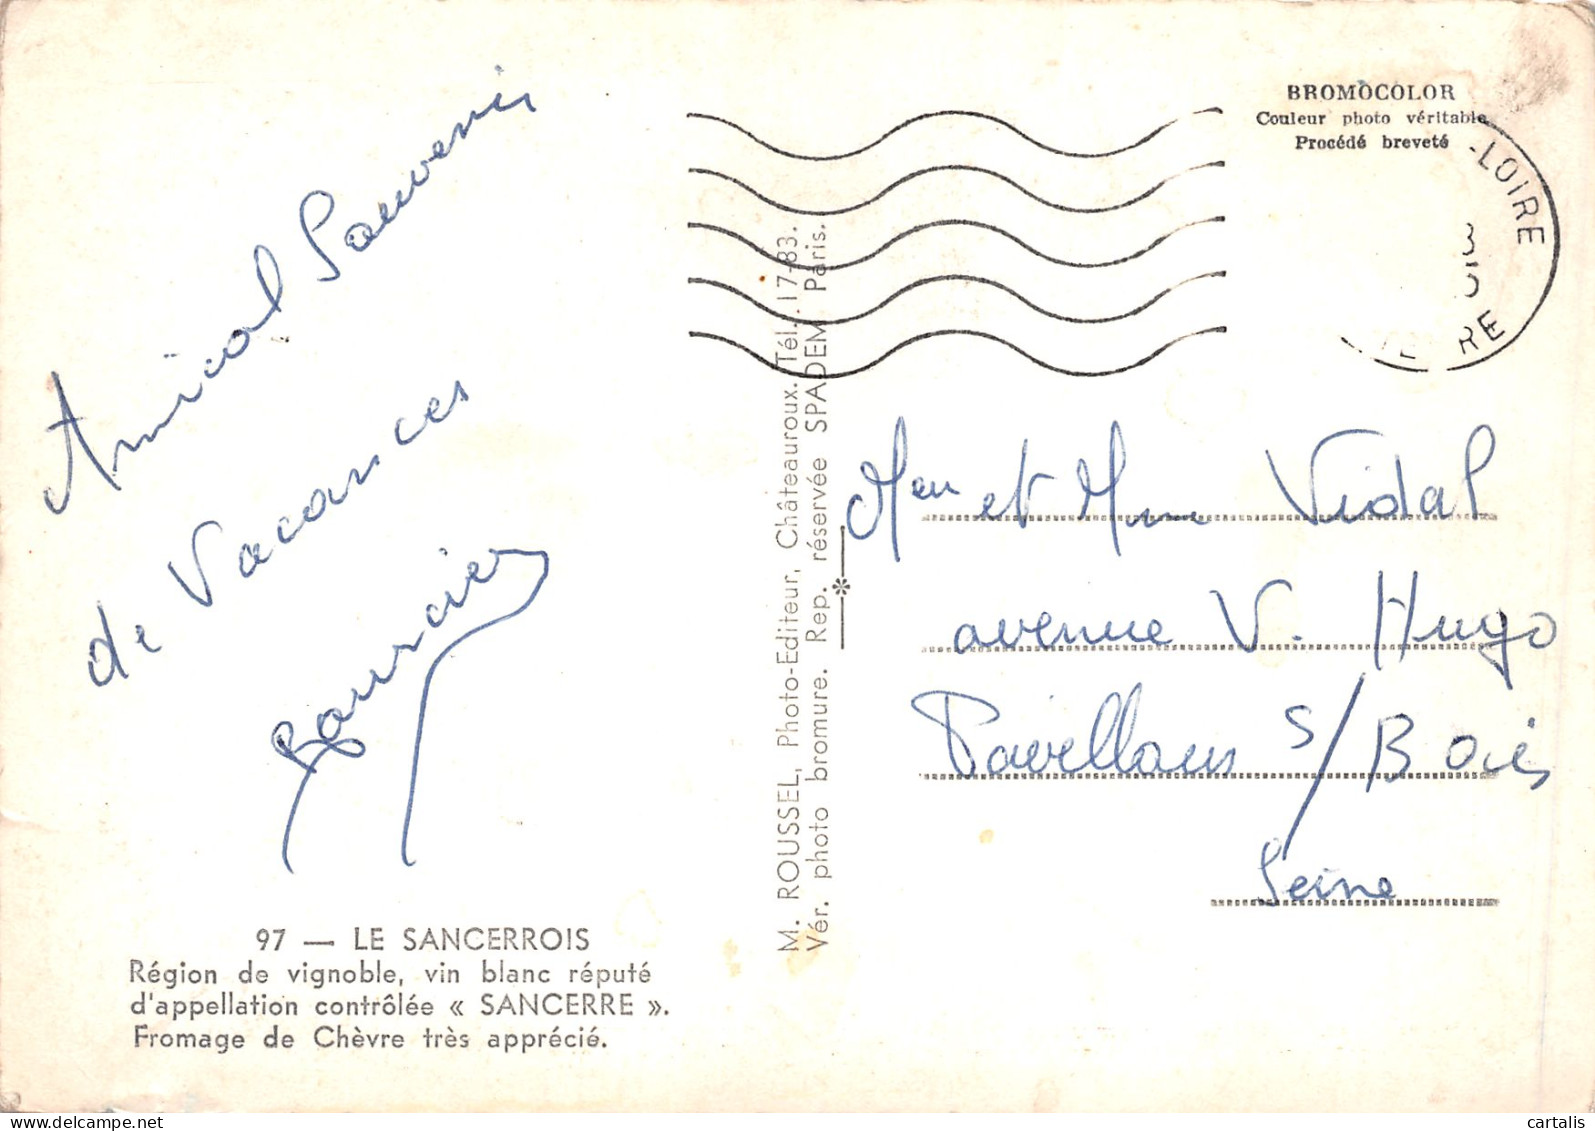 Amical Souvenir
de Vacances
97 — LE SANCERROIS
Région de vignoble, vin blanc réputé
d'appellation contrôlée « SANCERRE ».
Fromage de Chèvre très apprécié.
M. ROUSSEL, Photo-Editeur, Châteauroux. Tél. 17-83.
Vér. photo bromure. Rep. réservée SPADEM Paris.
BROMOCOLOR
Couleur photo véritable
Procédé breveté
-LOIRE
Mr et Mme Vidal
avenue V. Hugo
Pavillons s/Bois
Seine
cartalis